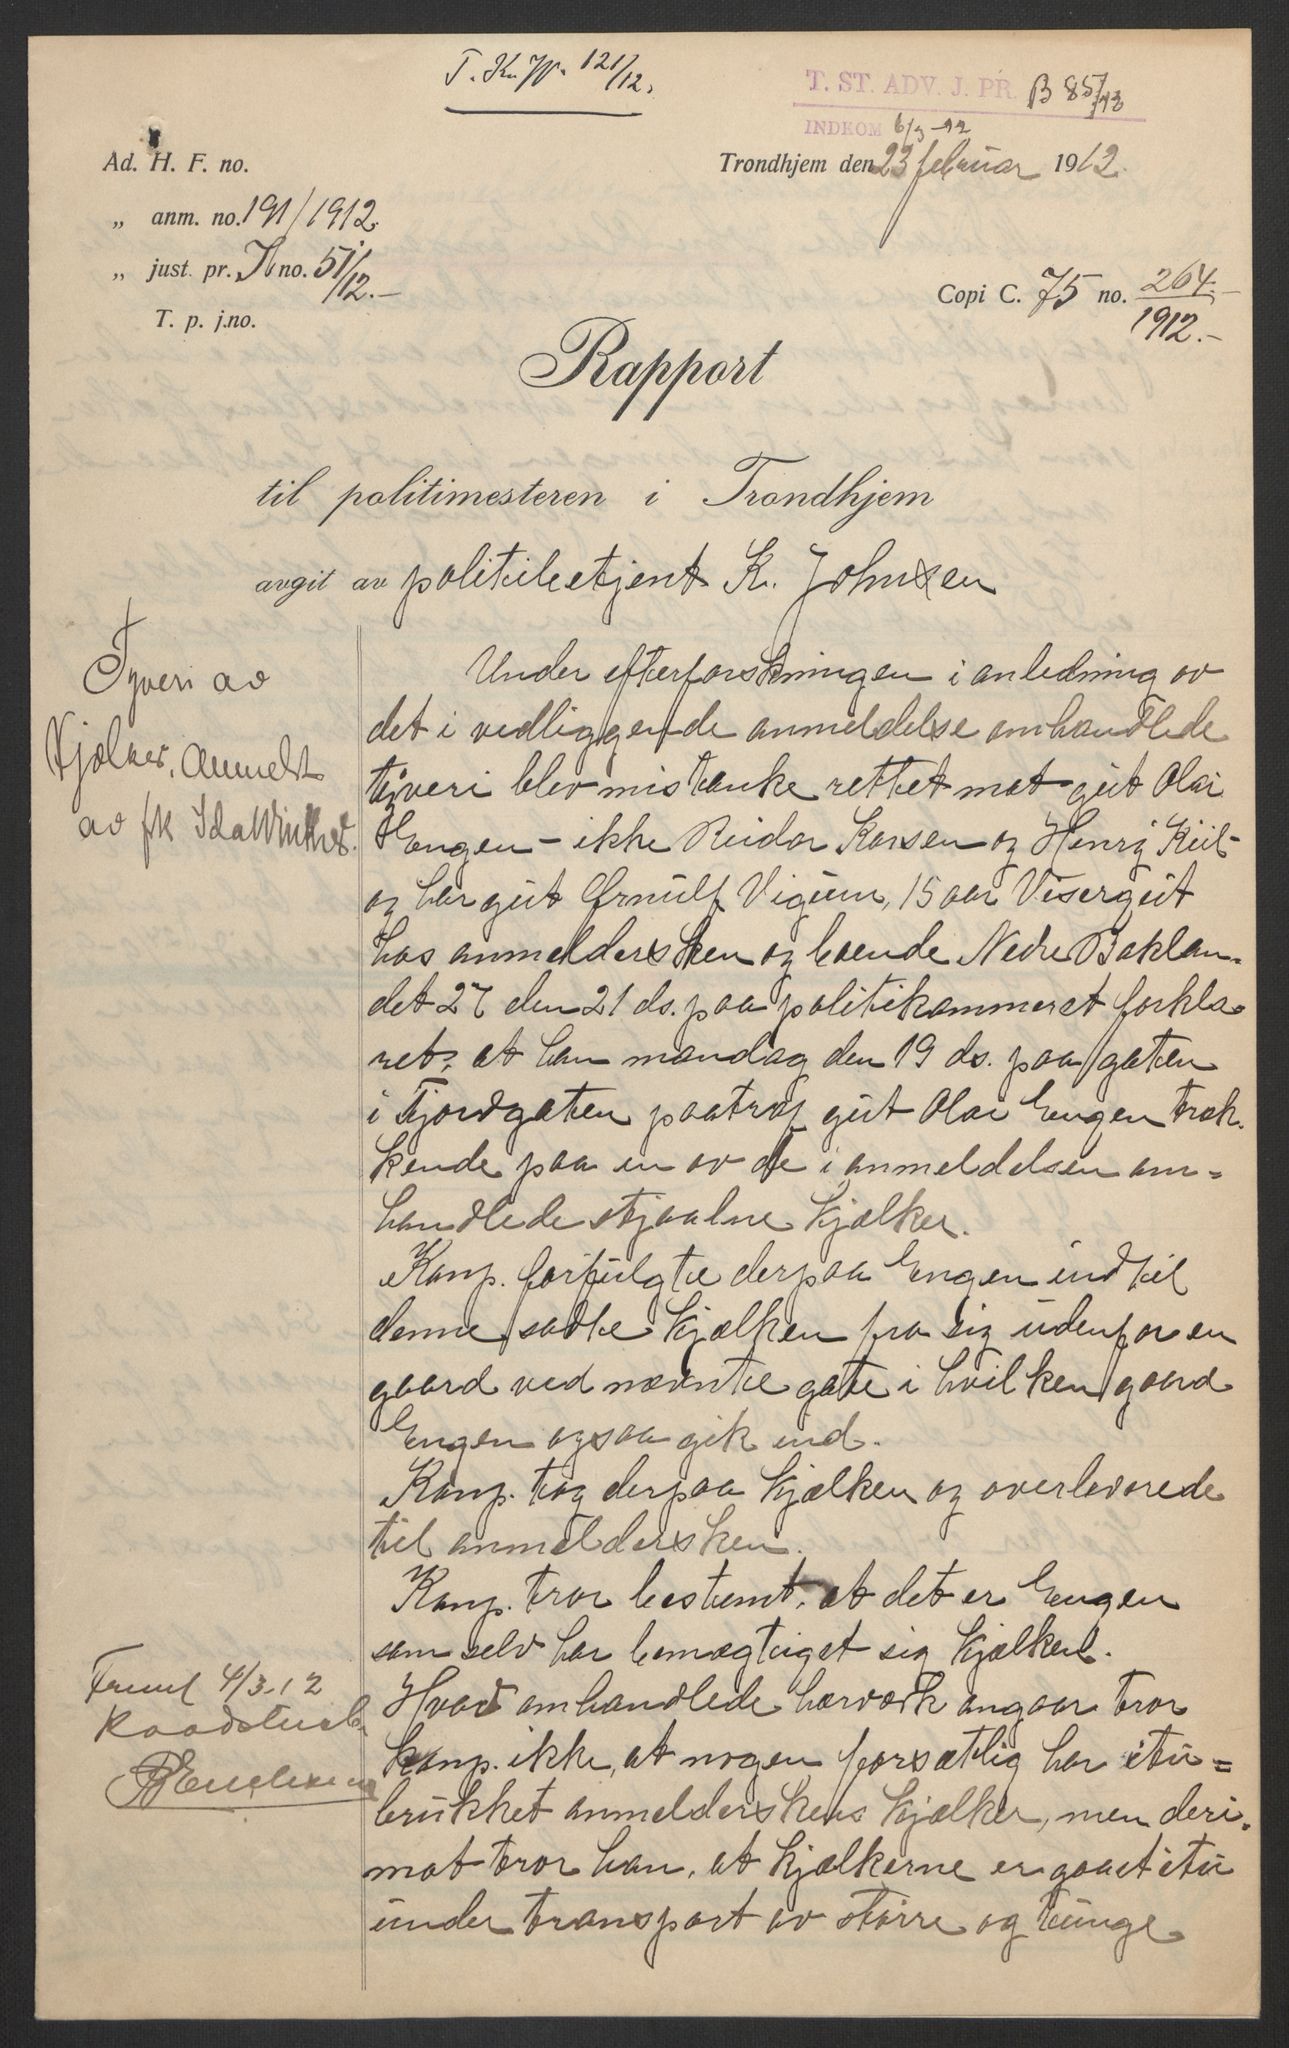 T. Kr. JP. 121/12.
T. ST. ADV. J. PR. B 85/12
INDKOM 6/3-12
Ad. H. F. no.
Trondhjem den 23 februar 1912.
„ anm. no. 191/1912.
„ just. pr. H no. 51/12.-
Copi C. 75 no. 264.-/1912.-
T. p. j.no.
Rapport
til politimesteren i Trondhjem
avgit av politibetjent K. Johnsen
Tyveri av
kjælker, anmeldt
av frk Ida Winther.
Under efterforskningen i anledning av
det i vedliggende anmeldelse omhandlede
tyveri blev mistanke rettet mot gut Olai
Engen - ikke Reidar Karsen og Henry Kiil -
og har gut Ørnulf Vigum, 15 aar Visergut
hos anmeldersken og boende Nedre Baklan=
det 27 den 21 ds. paa politikammeret forkla=
ret: at han mandag den 19 ds. paa gaten
i Fjordgaten paatraf gut Olai Engen træk=
kende paa en av de i anmeldelsen om=
handlede stjaalne kjælker.
Komp. forfulgte derpaa Engen indtil
denne satte kjælken fra sig utenfor en
gaard ved nævnte gate i hvilken gaard
Engen ogsaa gik ind.
Komp. tog derpaa kjælken og overleverede
til anmeldersken.
Komp. tror bestemt, at det er Engen
som selv har bemægtiget sig kjælken.
Hvad omhandlede hærværk angaar tror
komp. ikke, at nogen forsætlig har itu=
brukket anmelderskens kjælker, men deri=
mot tror han, at kjælkerne er gaaet itu
under transport av større og tunge
Freml 4/3.12